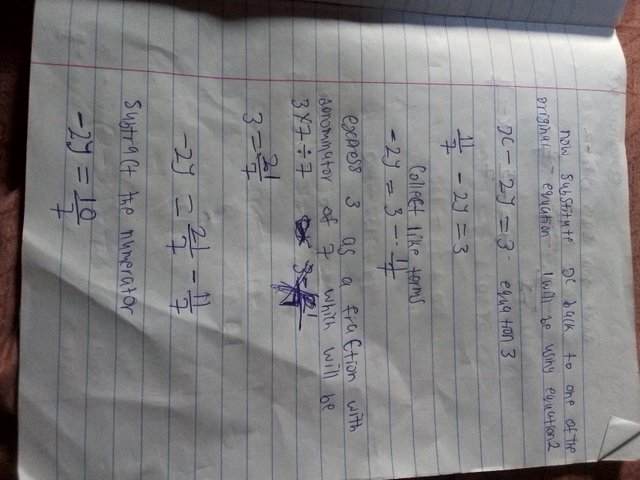 now substitute x back to one of the
original - equation I will be using equation 2
x - 2y = 3 equation 3
11/7 - 2y = 3
Collect like terms
-2y = 3 - 11/7
express 3 as a fraction with
denominator of 7 which will be
3 x 7 ÷ 7
3 = 21/7
-2y = 21/7 - 11/7
Subtract the numerator
-2y = 10/7